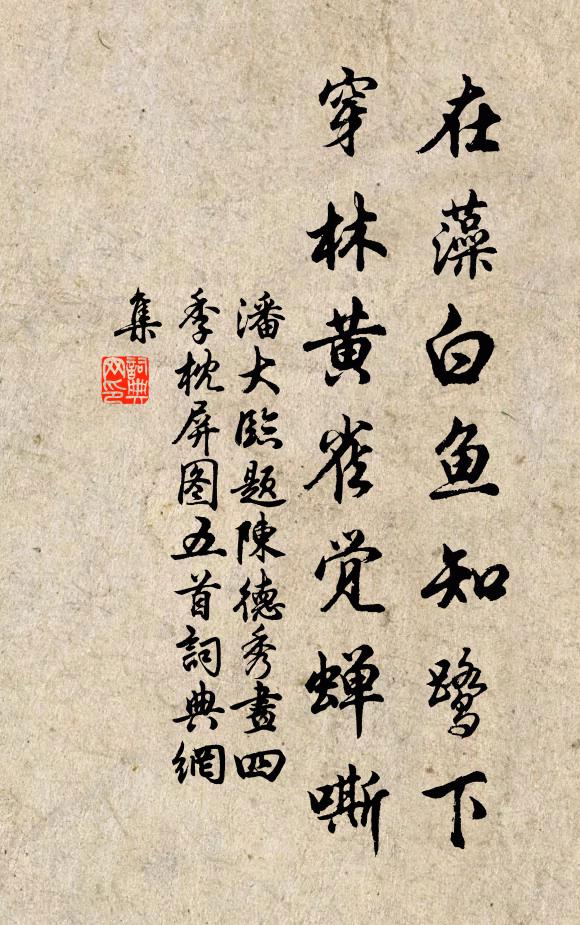 在藻白鱼知鹭下
穿林黄雀觉蝉嘶
潘大臨题陳德秀畫四
季枕屏图五首詞典網
集
詞典
网印